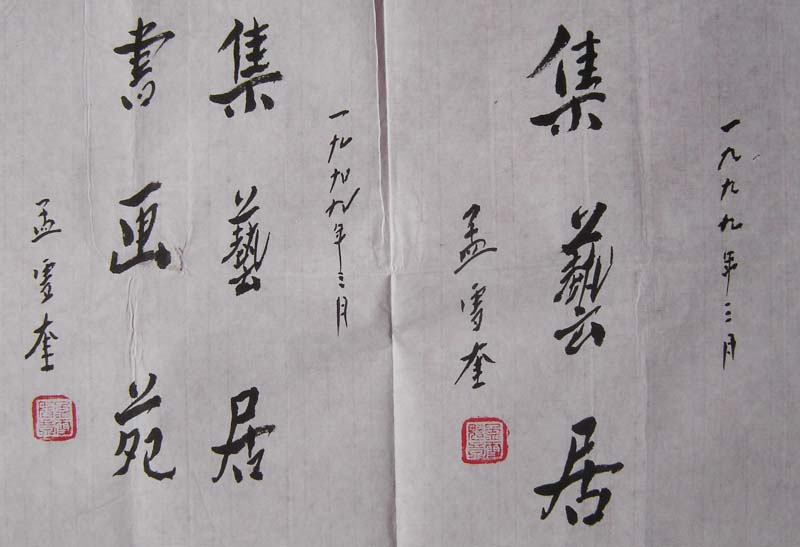 一九九九年三月
集藝居
孟雪奎
一九九九年三月
集藝居
書画苑
孟雪奎